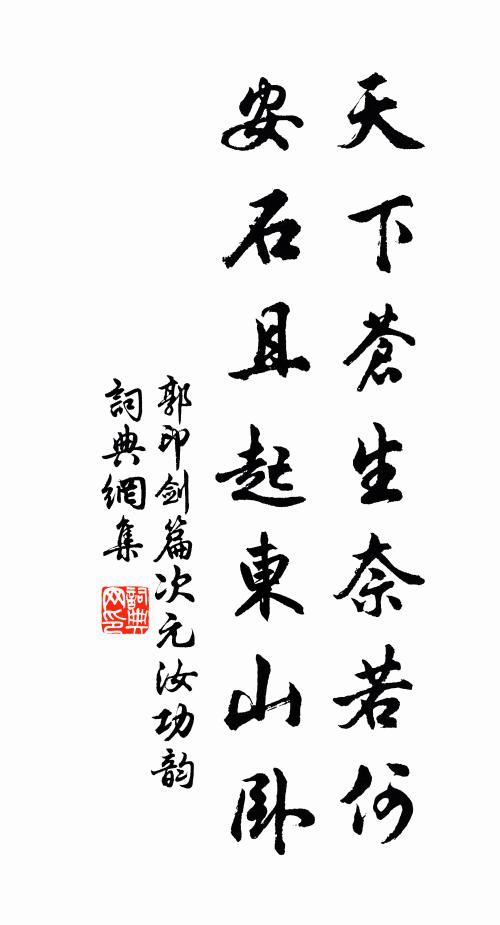 天下蒼生奈若何
安石且起東山臥
郭印剑篇次元汝功韵
詞典網集
詞典网印